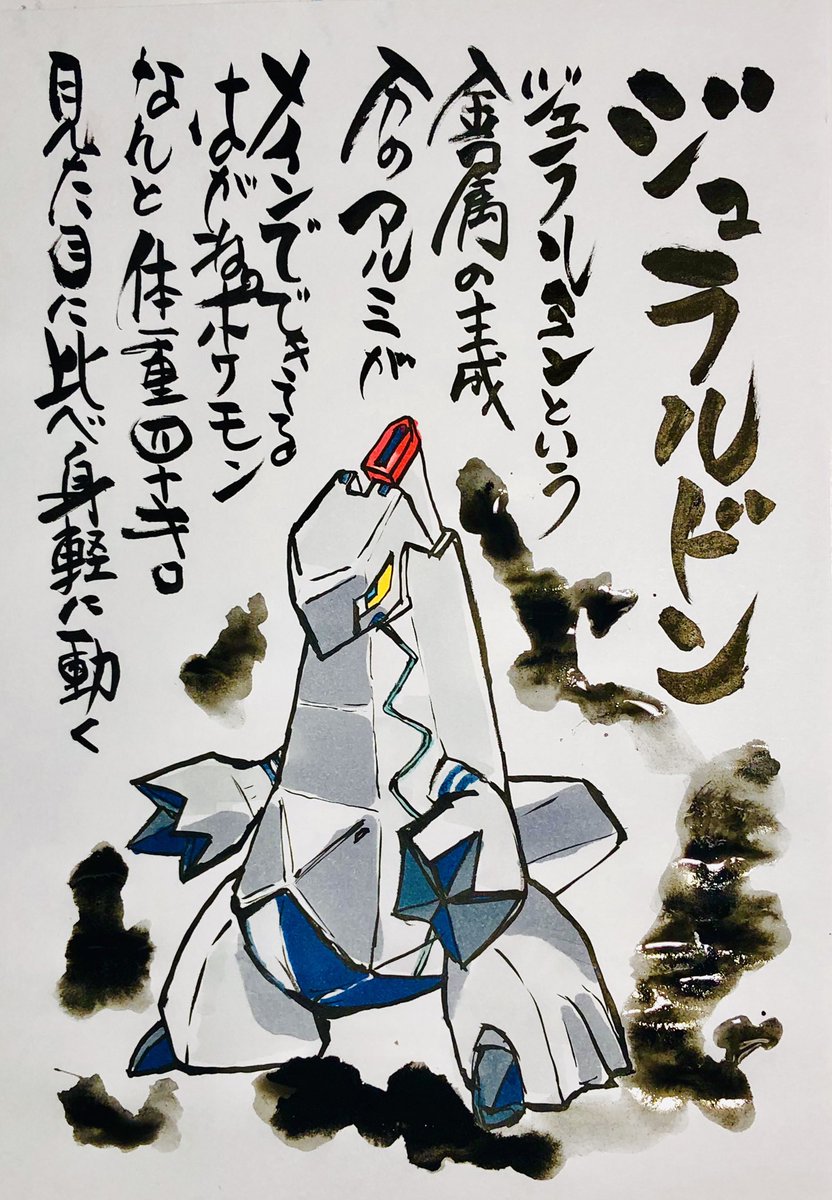 ジュラルドン
ジュラルミンという
金属の主成
分のアルミが
メインでできてる
はがねのポケモン
なんと体重四十キロ
見た目に比べ身軽に動く